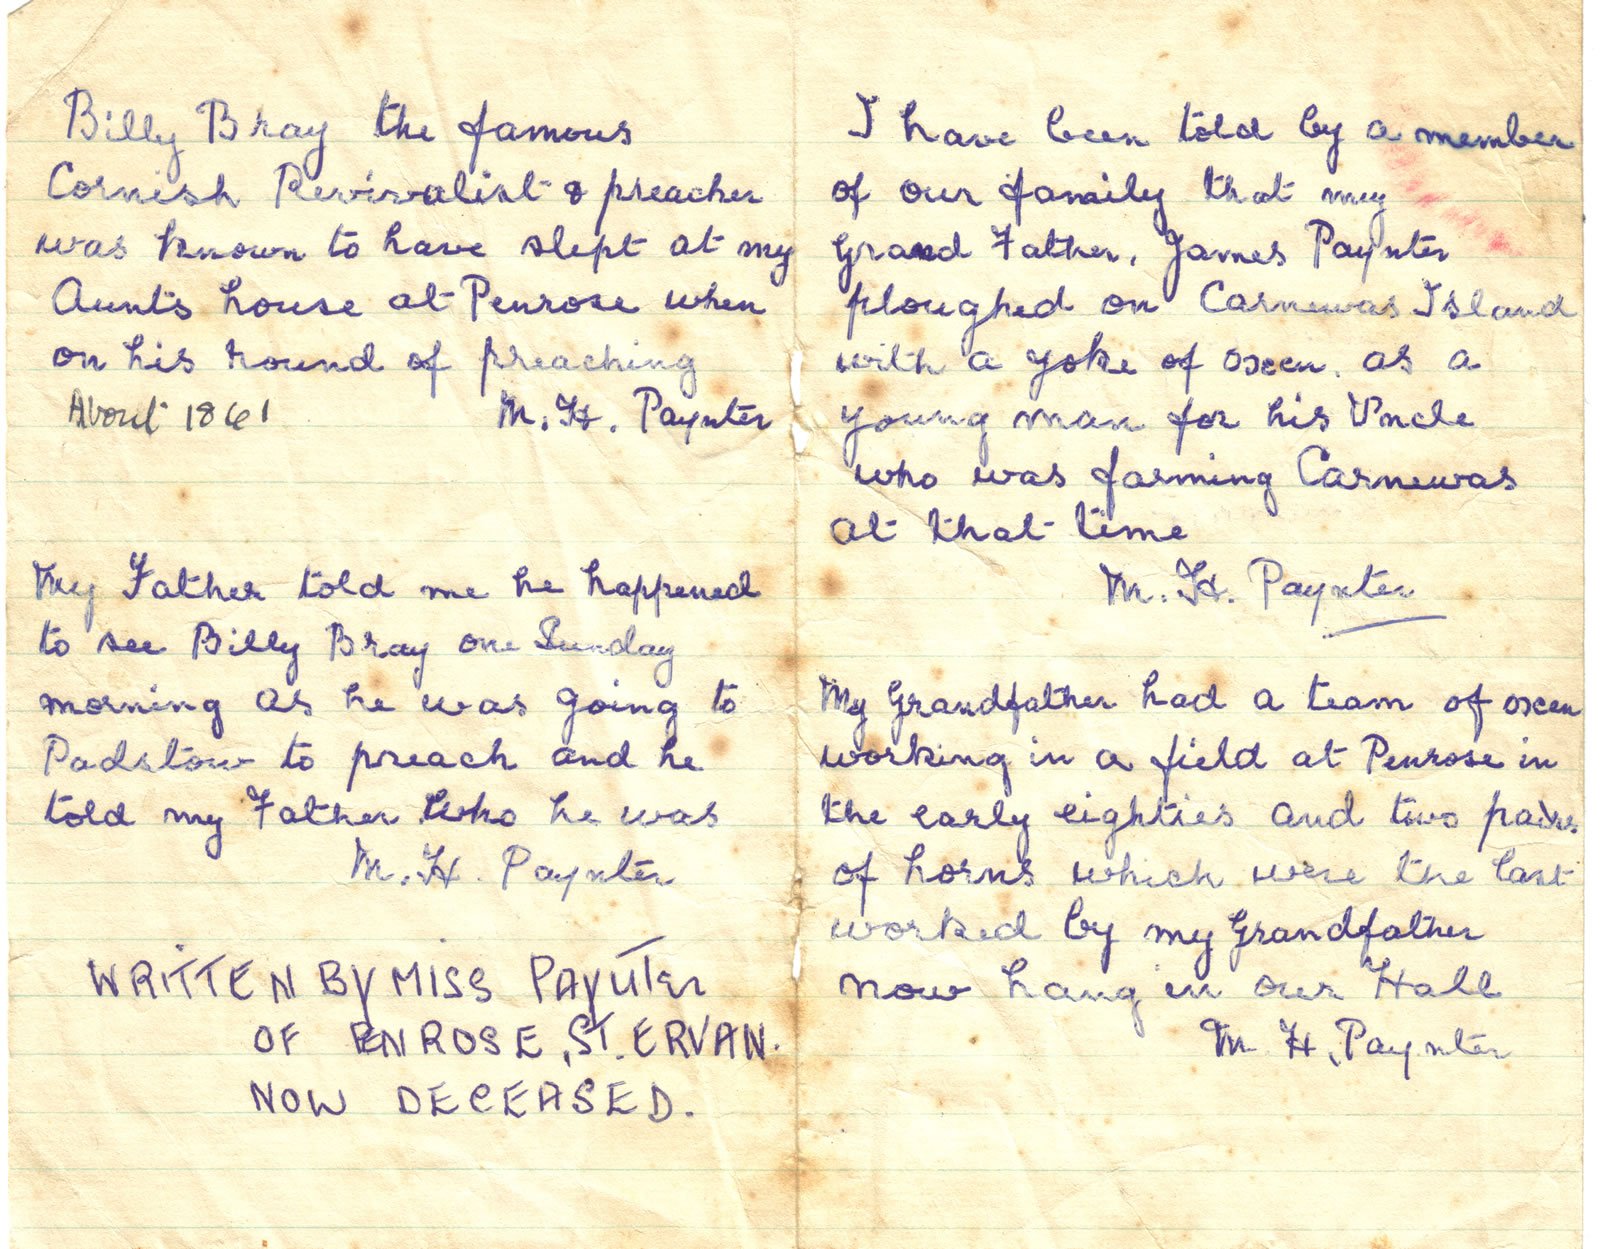 Billy Bray the famous
Cornish Revivalist & preacher
was known to have slept at my
Aunt's house at Penrose when
on his round of preaching
About 1861 M. H. Paynter
My Father told me he happened
to see Billy Bray one Sunday
morning as he was going to
Padstow to preach and he
told my Father who he was
M. H. Paynter
WRITTEN BY MISS PAYNTER
OF PENROSE, ST. ERVAN.
NOW DECEASED.
I have been told by a member
of our family that my
Grand Father, James Paynter
ploughed on Carnewas Island
with a yoke of oxen, as a
young man for his Uncle
who was farming Carnewas
at that time
M. H. Paynter
My Grandfather had a team of oxen
working in a field at Penrose in
the early eighties and two pairs
of horns which were the last
worked by my Grandfather
now hang in our Hall
M H. Paynter